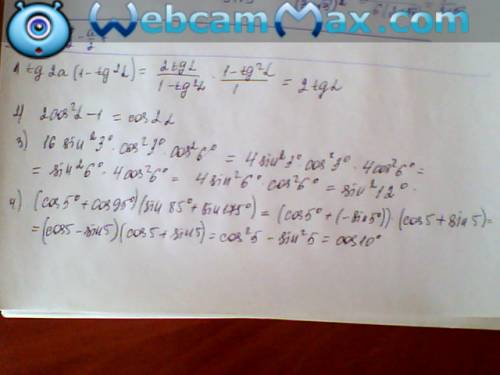 WebcamMax.com
1 tg 2α (1 - tg²α) = 2tgα / (1 - tg²α) · (1 - tg²α) / 1 = 2tgα
2) 2cos²α - 1 = cos 2α
3) 16 sin²3° · cos²3° · cos²6° = 4 sin²3° cos²3° · 4cos²6° =
= sin²6° · 4cos²6° = 4 sin²6° · cos²6° = sin²12°.
4) (cos5° + cos95°)(sin 85° + sin 175°) = (cos5° + (-sin5°)) · (cos5 + sin5) =
= (cos5 - sin5)(cos5 + sin5) = cos²5 - sin²5 = cos10°